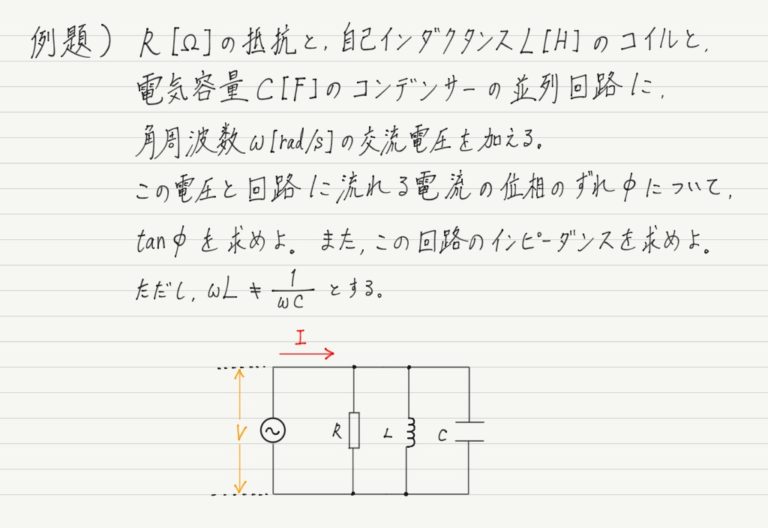 例題) R[Ω]の抵抗と,自己インダクタンスL[H]のコイルと,
電気容量C[F]のコンデンサーの並列回路に,
角周波数ω[rad/s]の交流電圧を加える。
この電圧と回路に流れる電流の位相のずれφについて,
tanφを求めよ。また,この回路のインピーダンスを求めよ。
ただし, ωL ≠ 1/ωC とする。
I
V
R
L
C